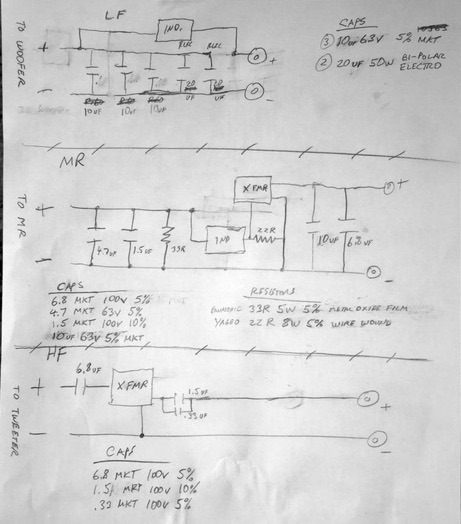 LF
TO WOOFER
IND.
+
ELEC
ELEC
+
-
-
10UF
10UF
10UF
20
UF
20
UF
CAPS
③ 10UF 63V 5% MKT
② 20UF 50W BI-POLAR
ELECTRO
MR
TO MR
XFMR
+
+
IND
22R
4.7UF
1.5UF
33R
10UF
6.8UF
-
-
CAPS
6.8 MKT 100V 5%
4.7 MKT 63V 5%
1.5 MKT 100V 10%
10UF 63V 5% MKT
RESISTORS
33R 5W 5% METAL OXIDE FILM
YAGEO 22R 8W 5% WIRE WOUND
HF
TO TWEETER
6.8UF
+
XFMR
1.5UF
.33UF
+
-
-
CAPS
6.8 MKT 100V 5%
1.5 MKT 100V 10%
.33 MKT 100V 5%